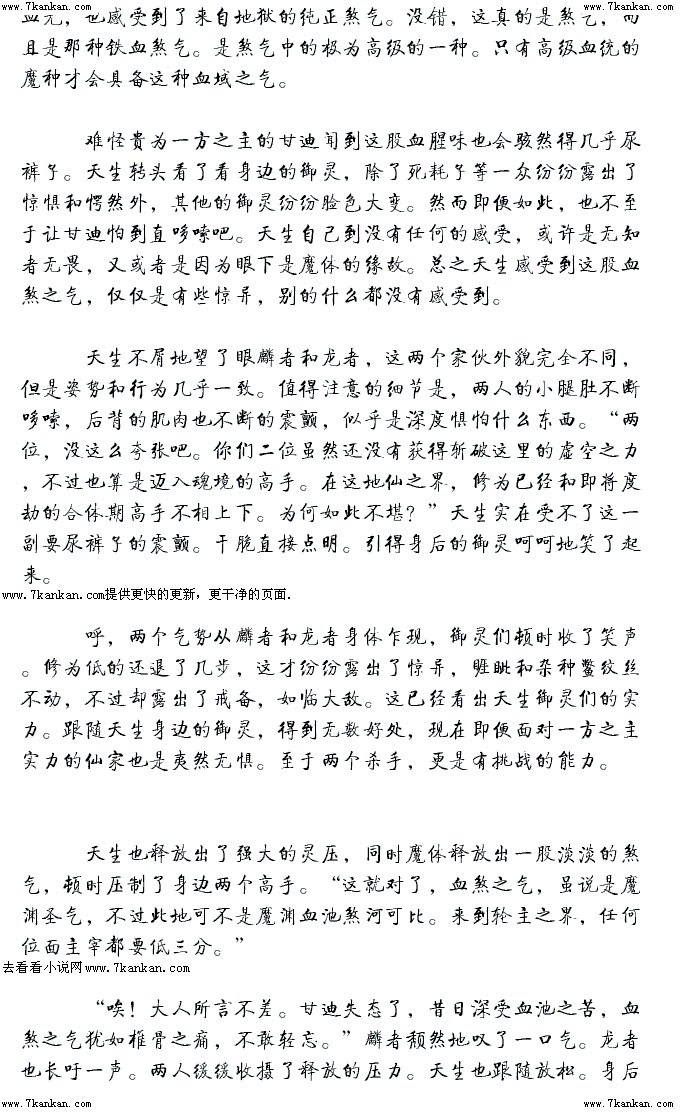 www.7kankan.com www.7kankan.com
也感受到了来自地狱的纯正煞气。没错，这真的是煞气，而
且是那种铁血煞气。是煞气中的极为高级的一种。只有高级血统的
魔种才会具备这种血域之气。
难怪贵为一方之主的甘迪闻到这股血腥味也会骇然得几乎尿
裤子。天生转头看了看身边的御灵，除了死耗子等一众纷纷露出了
惊惧和愕然外，其他的御灵纷纷脸色大变。然而即便如此，也不至
于让甘迪怕到直哆嗦吧。天生自己到没有任何的感受，或许是无知
者无畏，又或者是因为眼下是魔体的缘故。总之天生感受到这股血
煞之气，仅仅是有些惊异，别的什么都没有感受到。
天生不屑地望了眼麟者和龙者，这两个家伙外貌完全不同，
但是姿势和行为几乎一致。值得注意的细节是，两人的小腿肚不断
哆嗦，后背的肌肉也不断的震颤，似乎是深度惧怕什么东西。“两
位，没这么夸张吧。你们二位虽然还没有获得斩破这里的虚空之力
，不过也算是迈入魂境的高手。在这地仙之界，修为已经和即将度
劫的合体期高手不相上下。为何如此不堪？”天生实在受不了这一
副要尿裤子的震颤。干脆直接点明。引得身后的御灵呵呵地笑了起
来。
www.7kankan.com提供更快的更新，更干净的页面.
呼，两个气势从麟者和龙者身体乍现，御灵们顿时收了笑声
。修为低的还退了几步，这才纷纷露出了惊异，睚眦和杂种鳖纹丝
不动，不过却露出了戒备，如临大敌。这已经看出天生御灵们的实
力。跟随天生身边的御灵，得到无数好处，现在即便面对一方之主
实力的仙家也是夷然无惧。至于两个杀手，更是有挑战的能力。
天生也释放出了强大的灵压，同时魔体释放出一股淡淡的煞
气，顿时压制了身边两个高手。“这就对了，血煞之气，虽说是魔
渊圣气，不过此地可不是魔渊血池煞河可比。来到轮主之界，任何
位面主宰都要低三分。”
去看看小说网www.7kankan.com
“唉！大人所言不差。甘迪失态了，昔日深受血池之苦，血
煞之气犹如椎骨之痛，不敢轻忘。”麟者颓然地叹了一口气。龙者
也长吁一声。两人缓缓收摄了释放的压力。天生也跟随放松。身后
www.7kankan.com www.7kankan.com